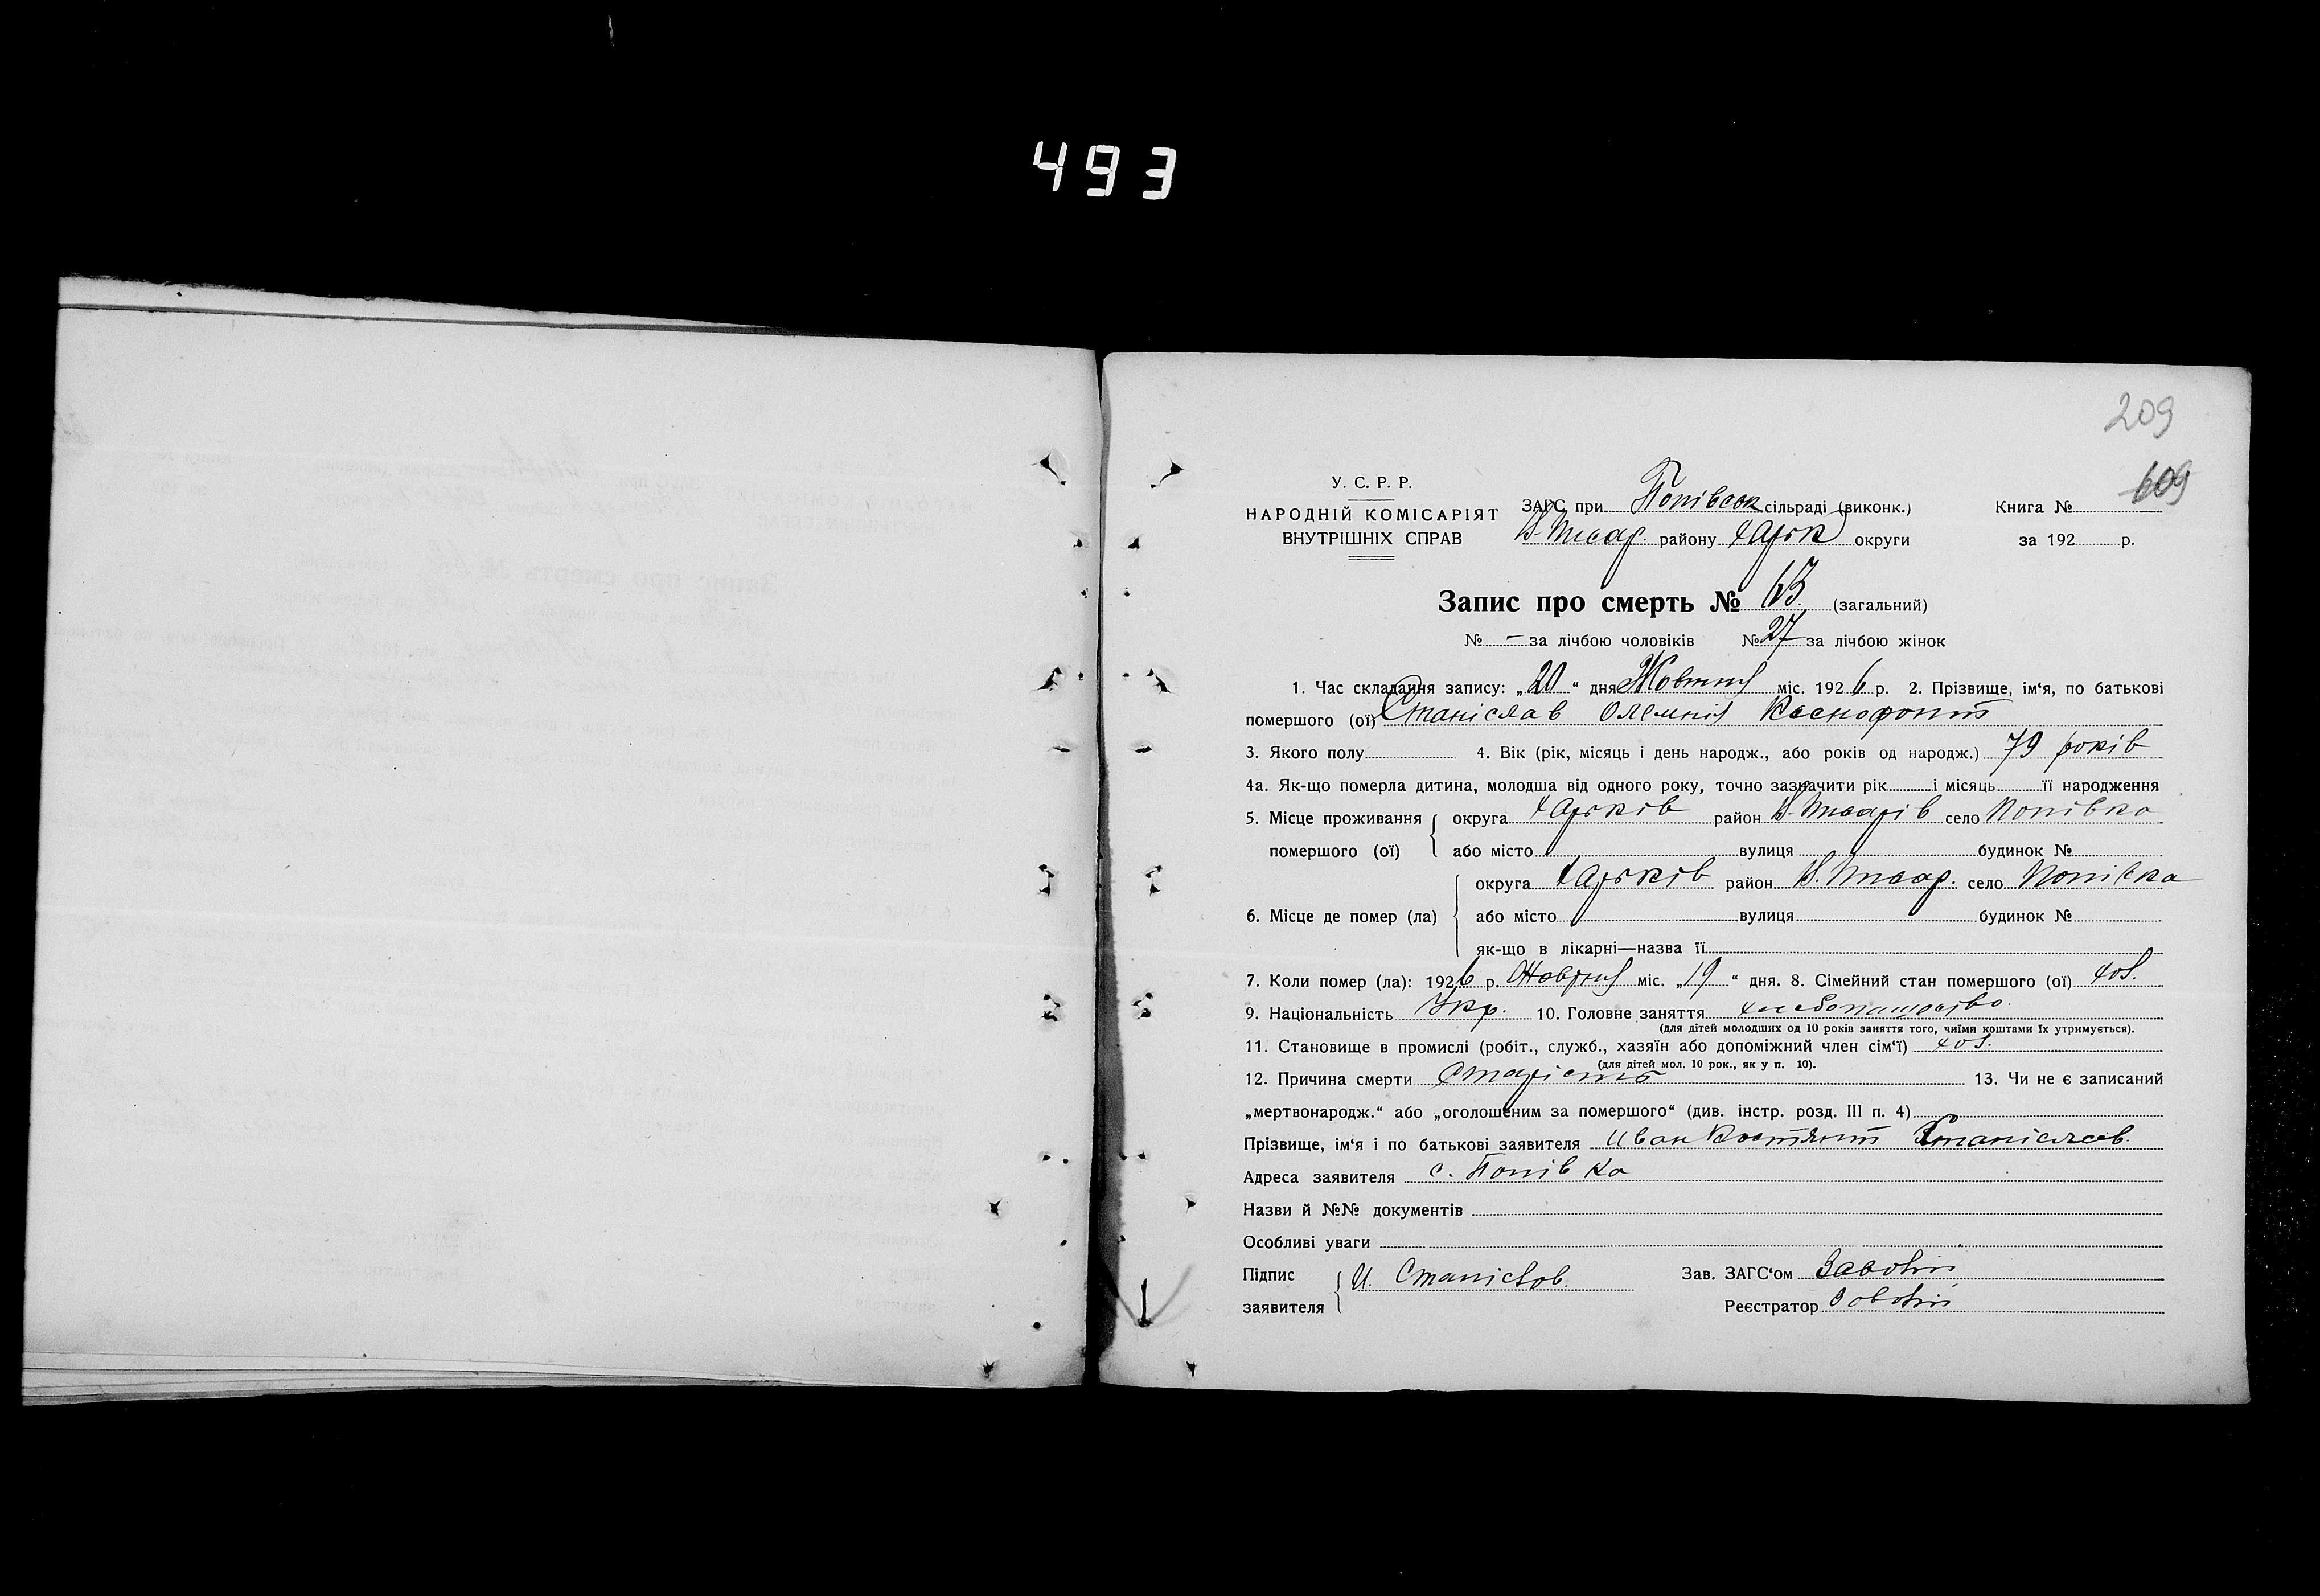 493
209
609
У. С. Р. Р.
НАРОДНІЙ КОМІСАРІЯТ
ВНУТРІШНІХ СПРАВ
ЗАГС при Попівськ сільраді (виконк.)
району Харьк округи
Книга №
за 192 р.
Запис про смерть № 63. (загальний)
№ – за лічбою чоловіків № 27 за лічбою жінок
1. Час складання запису: „20“ дня Жовтня міс. 1926 р. 2. Прізвище, ім‘я, по батькові
помершого (ої) Станіслав Ксенофонт
3. Якого полу 4. Вік (рік, місяць і день народж., або років од народж.) 79 років
4а. Як-що померла дитина, молодша від одного року, точно зазначити рік і місяць її народження
5. Місце проживання округа Харьків район село Попівка
помершого (ої) або місто вулиця будинок №
округа Харьків район село Попівка
6. Місце де помер (ла) або місто вулиця будинок №
як-що в лікарні—назва її
7. Коли помер (ла): 1926 р. Жовтня міс. „19“ дня. 8. Сімейний стан помершого (ої) хоз.
9. Національність Укр. 10. Головне заняття хлебопашество.
(для дітей молодших од 10 років заняття того, чиїми коштами їх утримується).
11. Становище в промислі (робіт., служб., хазяїн або допоміжний член сім‘ї) хоз.
(для дітей мол. 10 рок., як у п. 10).
12. Причина смерти Старість 13. Чи не є записаний
„мертвонародж.“ або „оголошеним за помершого“ (див. інстр. розд. III п. 4)
Прізвище, ім‘я і по батькові заявителя Иван Станіслав.
Адреса заявителя с. Попівка
Назви й №№ документів
Особливі уваги
Підпис
заявителя И. Станіслов.
Зав. ЗАГС‘ом
Реєстратор